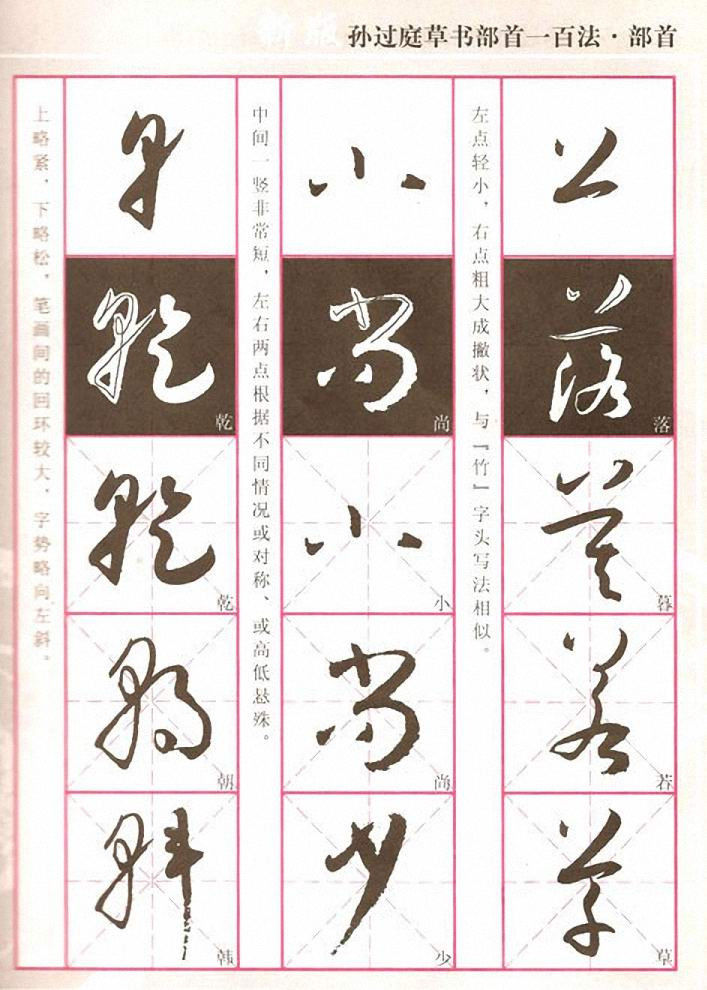 孙过庭草书部首一百法·部首
落
暮
若
草
左点轻小，右点粗大成撇状，与『竹』字头写法相似。
尚
小
尚
少
中间一竖非常短，左右两点根据不同情况或对称、或高低悬殊。
乾
乾
朝
韩
上略紧，下略松，笔画间的回环较大，字势略向左斜。